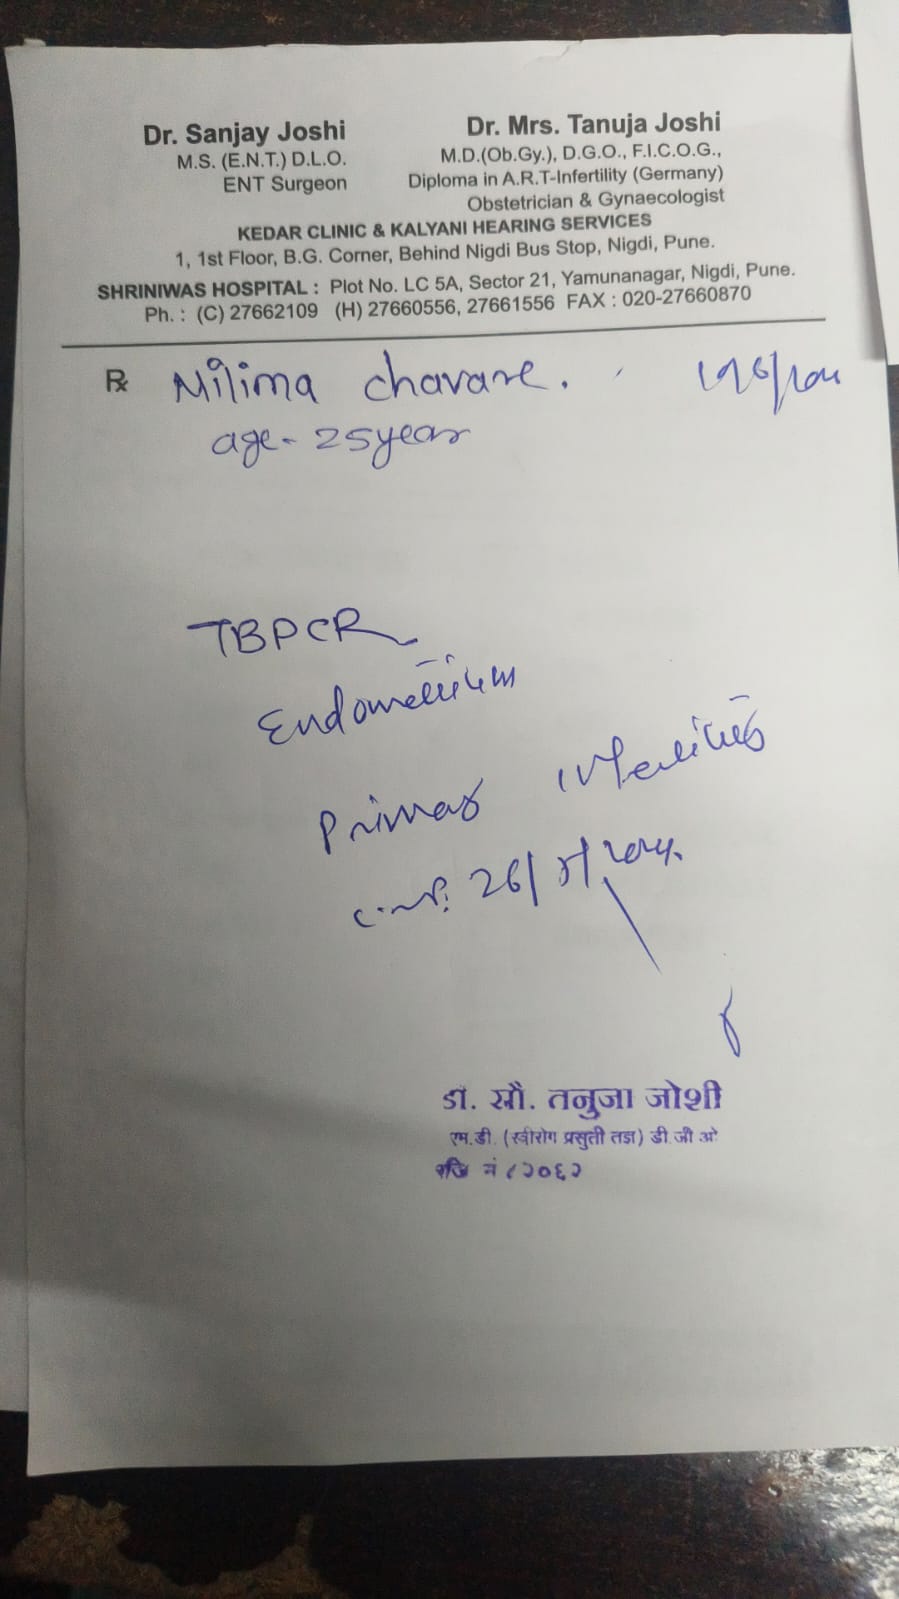 Dr. Sanjay Joshi
M.S. (E.N.T.) D.L.O.
ENT Surgeon
Dr. Mrs. Tanuja Joshi
M.D.(Ob.Gy.), D.G.O., F.I.C.O.G.,
Diploma in A.R.T-Infertility (Germany)
Obstetrician & Gynaecologist
KEDAR CLINIC & KALYANI HEARING SERVICES
1, 1st Floor, B.G. Corner, Behind Nigdi Bus Stop, Nigdi, Pune.
SHRINIWAS HOSPITAL : Plot No. LC 5A, Sector 21, Yamunanagar, Nigdi, Pune.
Ph. : (C) 27662109 (H) 27660556, 27661556 FAX : 020-27660870
℞ Nilima chavare.
age - 25 year
TBPCR
Endometrium
Primary infertility
26/
डॉ. सौ. तनुजा जोशी
एम.डी. (स्त्रीरोग प्रसुती तज्ञ) डी.जी.ओ
रजि नं